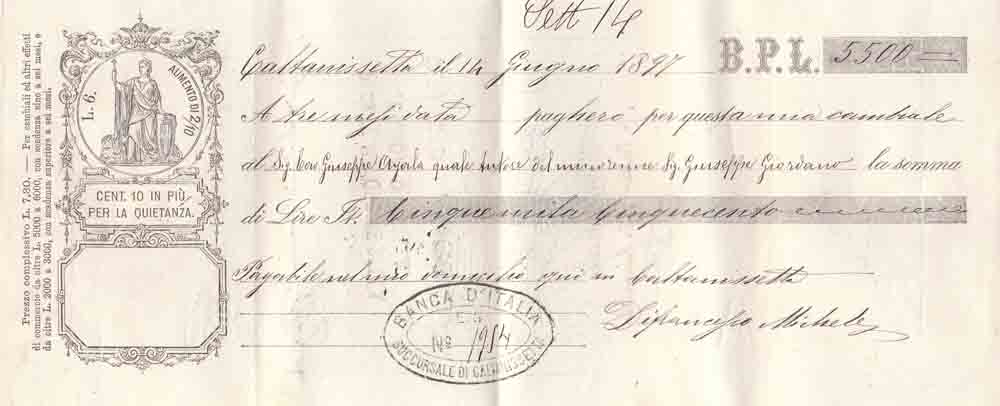 Sett 14
Caltanissetta il 14 Giugno 1897 B.P.L. 5500
A tre mesi data pagherò per questa una cambiale
al Sig. Cav. Giuseppe Ayala quale tutore del minorenne Sig. Giuseppe Giordano la somma
di Lire It. Cinque mila Cinquecento
Pagabile nel mio domicilio qui in Caltanissetta
Difrancesco Michele
L. 6. AUMENTO DI 2/10
CENT. 10 IN PIÙ
PER LA QUIETANZA.
Prezzo complessivo L. 7,30. — Per cambiali ed altri effetti
di commercio da oltre L. 5000 a 6000, con scadenza sino a sei mesi, e
da oltre L. 2000 a 3000, con scadenza superiore a sei mesi.
BANCA D'ITALIA
No 1954
SUCCURSALE DI CALTANISSETTA